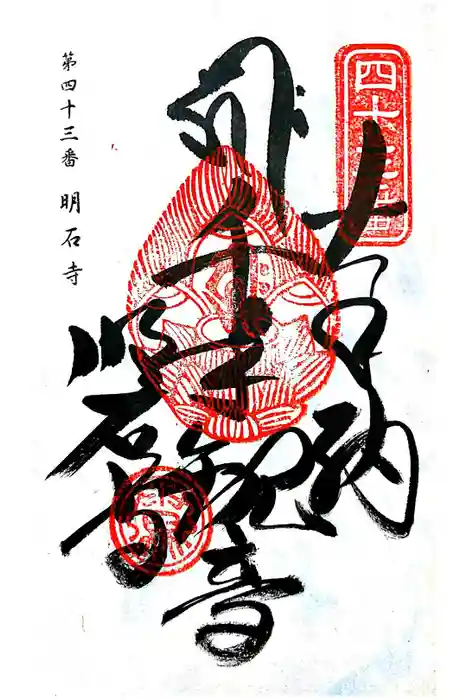 四十三番
奉納
千手観音
明石寺
第四十三番 明石寺